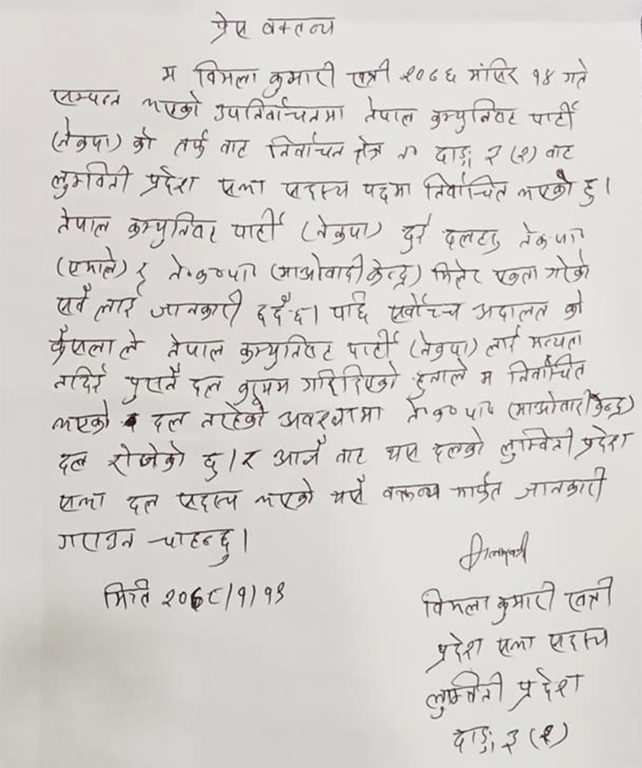 प्रेस वक्तव्य
म विमला कुमारी खत्री २०७६ मंसिर १४ गते
सम्पन्न भएको उपनिर्वाचनमा नेपाल कम्युनिष्ट पार्टी
(नेकपा) को तर्फ बाट निर्वाचन क्षेत्र नं दाङ ३ (२) बाट
लुम्विनी प्रदेश सभा सदस्य पदमा निर्वाचित भएको हु।
नेपाल कम्युनिष्ट पार्टी (नेकपा) दुई दलहरु ने‌क‌पा
(एमाले) र ने‌.क‌.पा (माओवादी केन्द्र) मिलेर एकता गरेको
सवै लाई जानकारी हुदैछ। पछि सर्वोच्च अदालत को
फैसला ले नेपाल कम्युनिष्ट पार्टी (नेकपा) लाई मान्यता
नदिई पुरानै दल कायम गरिदिएको हुनाले म निर्वाचित
भएको दल नरहेको अवस्थामा ने.क.पा (माओवादी केन्द्र)
दल रोजेको छु।र आजै बाट यस दलको लुम्विनी प्रदेश
सभा दल सदस्य भएको यसै वक्तव्य मार्फत जानकारी
गराउन चाहन्छु।
मिति २०७८/१/१३
विमला कुमारी खत्री
प्रदेश सभा सदस्य
लुम्विनी प्रदेश
दाङ ३ (२)